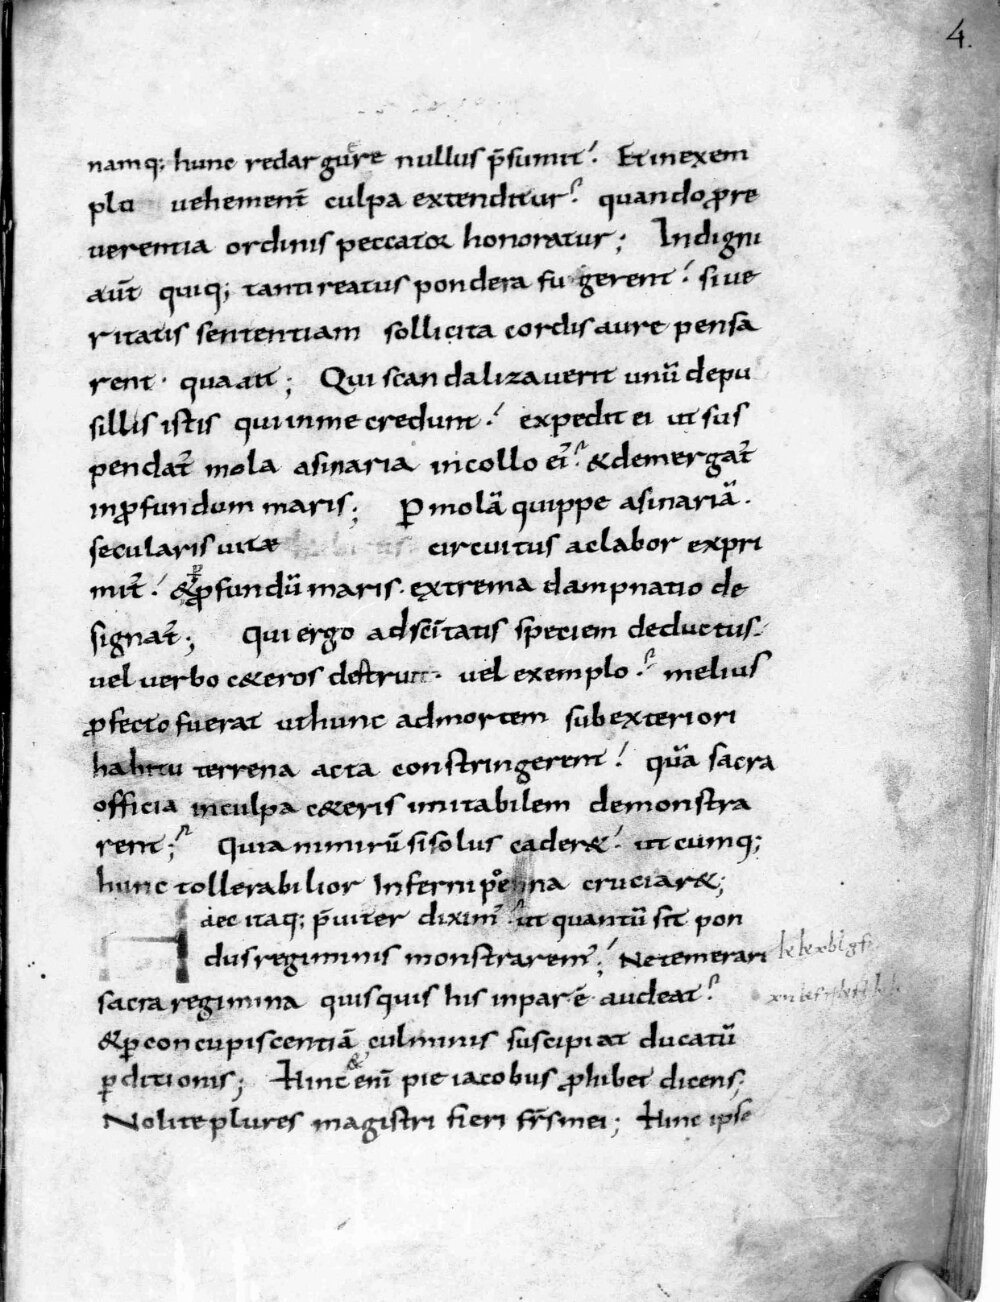 4.
namq; hunc redargure nullus p̄sumit. Et in exem
plū vehement̄ culpa extenditur. quando ꝓ re
verentia ordinis peccator honoratur; Indigni
aut̄ quiq; tanti reatus pondera fugerent. si ve
ritatis sententiam sollicita cordis aure pensa
rent. qua ait; Qui scandalizaverit unū de pu
sillis istis qui in me credunt. expedit ei ut sus
pendat̄ mola asinaria in collo ei'. & demergat̄
in ꝓfundum maris; Ꝑ molā quippe asinariā.
secularis vitæ circuitus ac labor expri
mit̄. & ꝓfundū maris. extrema dampnatio de
signat̄; Qui ergo ad sc̄itatis speciem deductus.
vel verbo c&eros destruit. vel exemplo. melius
ꝓfecto fuerat ut hunc ad mortem sub exteriori
habitu terrena acta constringerent. quā sacra
officia in culpa c&eris imitabilem demonstra
rent; Quia nimirū si solus cader&. utcumq;
hunc tollerabilior Inferni poena cruciar&;
Haec itaq; p̄viter dixim' ut quantū sit pon
dus regiminis monstrarem'; Ne temerari
sacra regimina quisquis his inpar ē audeat.
& ꝑ concupiscentiā culminis suscipiat ducatū
ꝑditionis; Hinc & enī pie iacobus ꝓhibet dicens;
Nolite plures magistri fieri fr̄s mei; Hinc ipse